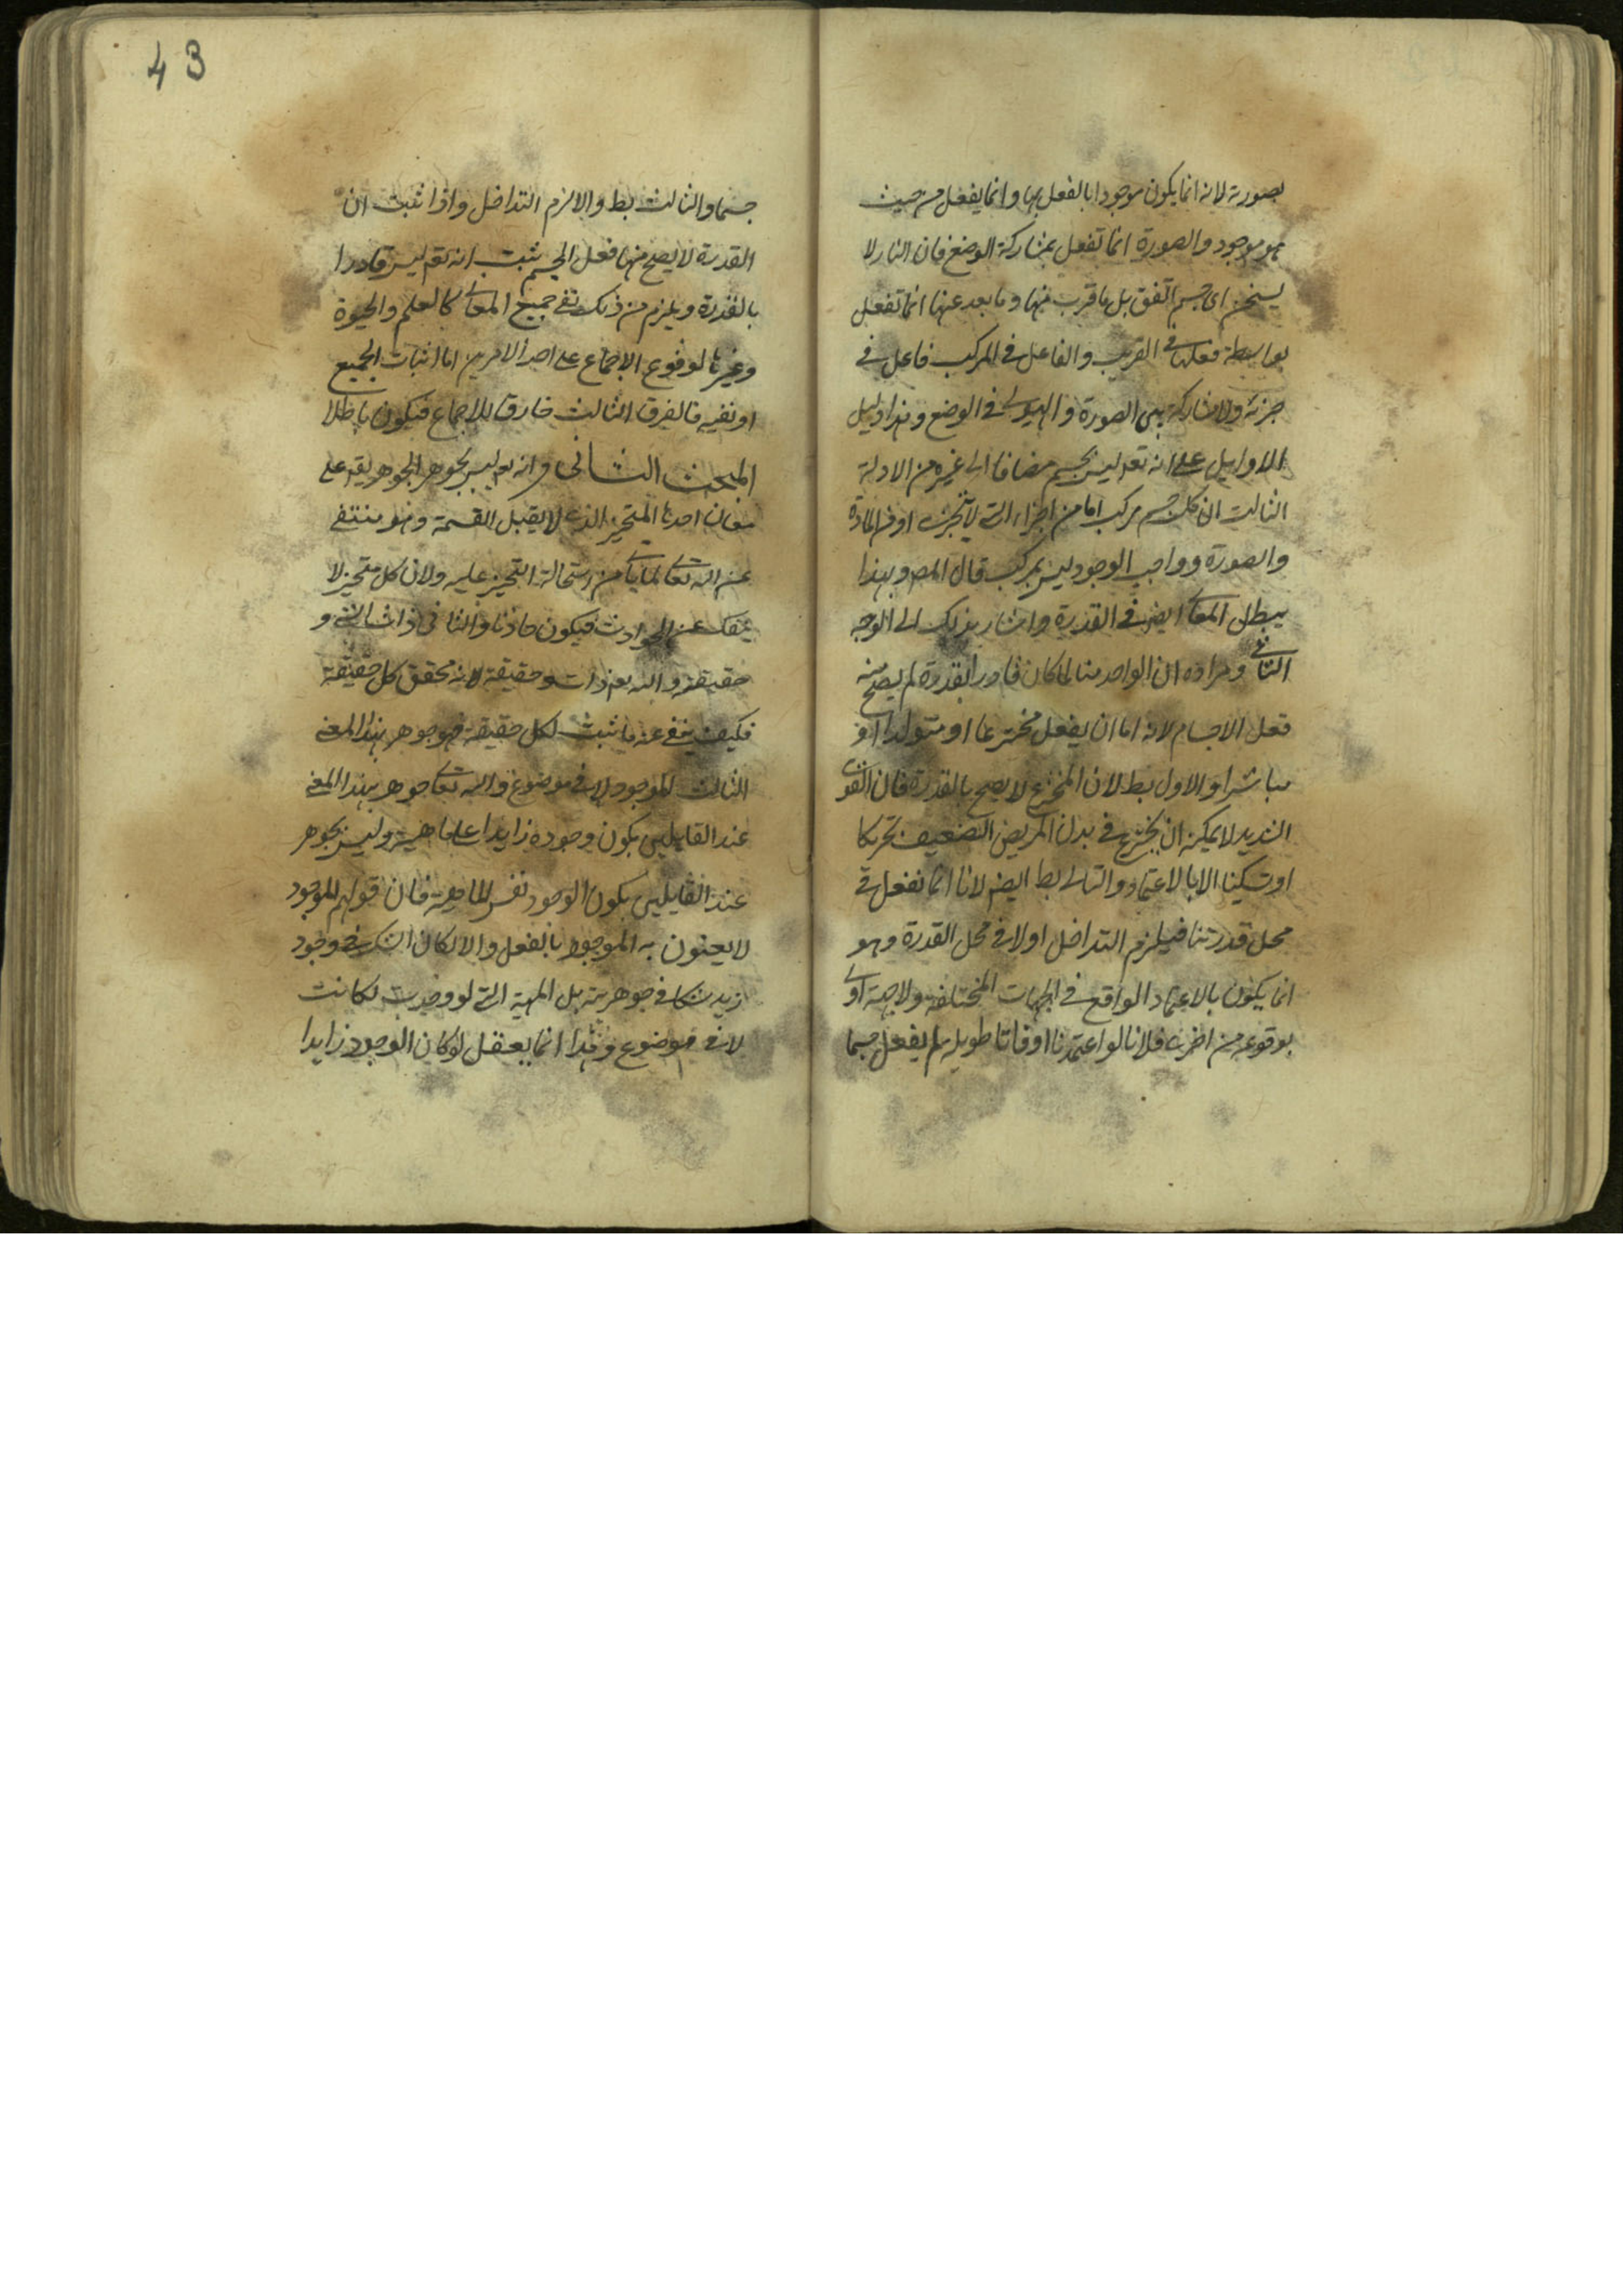 بصورته لانه انما يكون موجودا بالفعل بها وانما يفعل من حيث
هو موجود والصورة انما تفعل بمشاركة الوضع فان النار لا
يسخن اى جسم اتفق بل ما قرب منها وما بعد عنها انما تفعل
بواسطة فعلها فى القريب والفاعل فى المركب فاعل فى
جزئه ولا مشاركة بين الصورة والهيولى فى الوضع وهذا دليل
الاوايل على انه تعه ليس بجسم مضافا الى غيره من الادلة
الثالث ان كل جسم مركب اما من اجزاء التى لا تتجزى او من المادة
والصورة وواجب الوجود ليس بمركب قال المصر وبهذا
يبطل المعانى ايضا فى القدرة واشار بذلك الى الوجه
الثانى ومراده ان الواحد منا لما كان قادرا بقدرة لم يصح منه
فعل الاجسام لانه اما ان يفعل مخترعا او متولدا او
مباشرا والاول بط لان المخترع لا يصح بالقدرة فان القوى
الشديد لا يمكنه ان يخترع فى بدن المريض الضعيف تحريكا
او تسكينا الا بالاعتماد والثانى بط ايضا لانا انما نفعل فى
محل قدرتنا فيلزم التداخل او لا فى محل القدرة وهو
انما يكون بالاعتماد الواقع فى الجهات المختلفة ولا جهة اولى
بوقوعه من اخرى فلانا لو اعتمدنا اوقاتا طويلة لم يفعل جسما
43
جسما والثالث بط والا لزم التداخل واذا ثبت ان
القدرة لا يصح منها فعل الجسم ثبت انه تعه ليس قادرا
بالقدرة ويلزم من ذلك نفى جميع المعانى كالعلم والحيوة
وغيرها لوقوع الاجماع على احد الامرين اما اثبات الجميع
او نفيه فالفرق الثالث خارقا للاجماع فيكون باطلا
المبحث الثانى فى انه تعه ليس بجوهر الجوهر يقع على
معان احدها المتحيز الذى لا يقبل القسمة وهو منتف
عن الله تعالى لما ياتى من استحالة التحيز عليه ولان كل متحيز لا
ينفك عن الحوادث فيكون حادثا والثانى ذات الشئ و
حقيقته والله تعه ذات وحقيقة لانه محقق كل حقيقة
فكيف ينفى عنه ما يثبت لكل حقيقة فهو جوهر بهذا المعنى
الثالث الموجود لا فى موضوع والله تعالى جوهر بهذا المعنى
عند القايلين بكون وجوده زايدا على ماهيته وليس بجوهر
عند القايلين بكون الوجود نفس الماهية فان قولهم الموجود
لا يعنون به الموجود بالفعل والا لكان الشك فى وجود
زيد شكا فى جوهريته بل المهية التى لو وجدت لكانت
لا فى موضوع وهذا انما يعقل لو كان الوجود زايدا